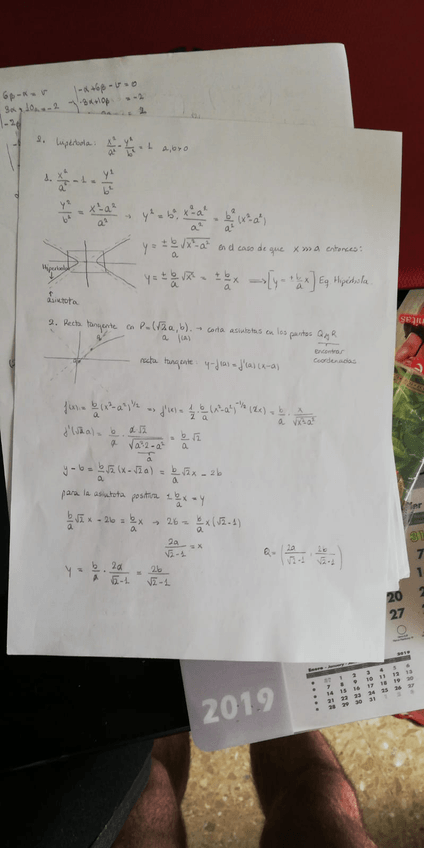 6β-α=v
-α+6β-v=0
2. Hipérbola: x²/a² - y²/b² = 1 a,b>0
1. x²/a² - 1 = y²/b²
y²/b² = (x²-a²)/a² → y² = b² · (x²-a²)/a² = b²/a² (x²-a²)
y = ± b/a √(x²-a²) en el caso de que x>>>a entonces:
Hipérbola
y = ± b/a √x² = ± b/a x ⟹ [y = ± b/a x] Eq Hipérbola.
asíntota
2. Recta tangente en P=(√2a, b). → corta asíntotas en los puntos Q y R
a f(a)
encontrar
coordenadas
recta tangente: y-f(a) = f'(a)(x-a)
f(x) = b/a (x²-a²)^1/2 ⟹ f'(x) = 1/2 · b/a (x²-a²)^-1/2 (2x) = b/a · x/√(x²-a²)
f'(√2a) = b/a · a√2/√(a²·2-a²) = b/a √2
a
y-b = b/a √2 (x-√2a) = b/a √2x - 2b
para la asíntota positiva ± b/a x = y
b/a √2x - 2b = b/a x → 2b = b/a x(√2-1)
2a/(√2-1) = x
Q = (2a/(√2-1), 2b/(√2-1))
y = b/a · 2a/(√2-1) = 2b/(√2-1)
31
20
27
2019
2019
Enero
07 1 2 3 4 5 6
7 8 9 10 11 12 13
14 15 16 17 18 19 20
21 22 23 24 25 26 27
28 29 30 31